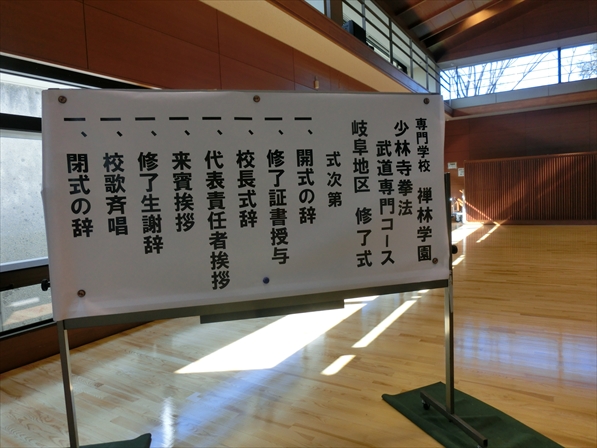 専門学校 禅林学園
少林寺拳法
武道専門コース
岐阜地区 修了式
式次第
一、開式の辞
一、修了証書授与
一、校長式辞
一、代表責任者挨拶
一、来賓挨拶
一、修了生謝辞
一、校歌斉唱
一、閉式の辞